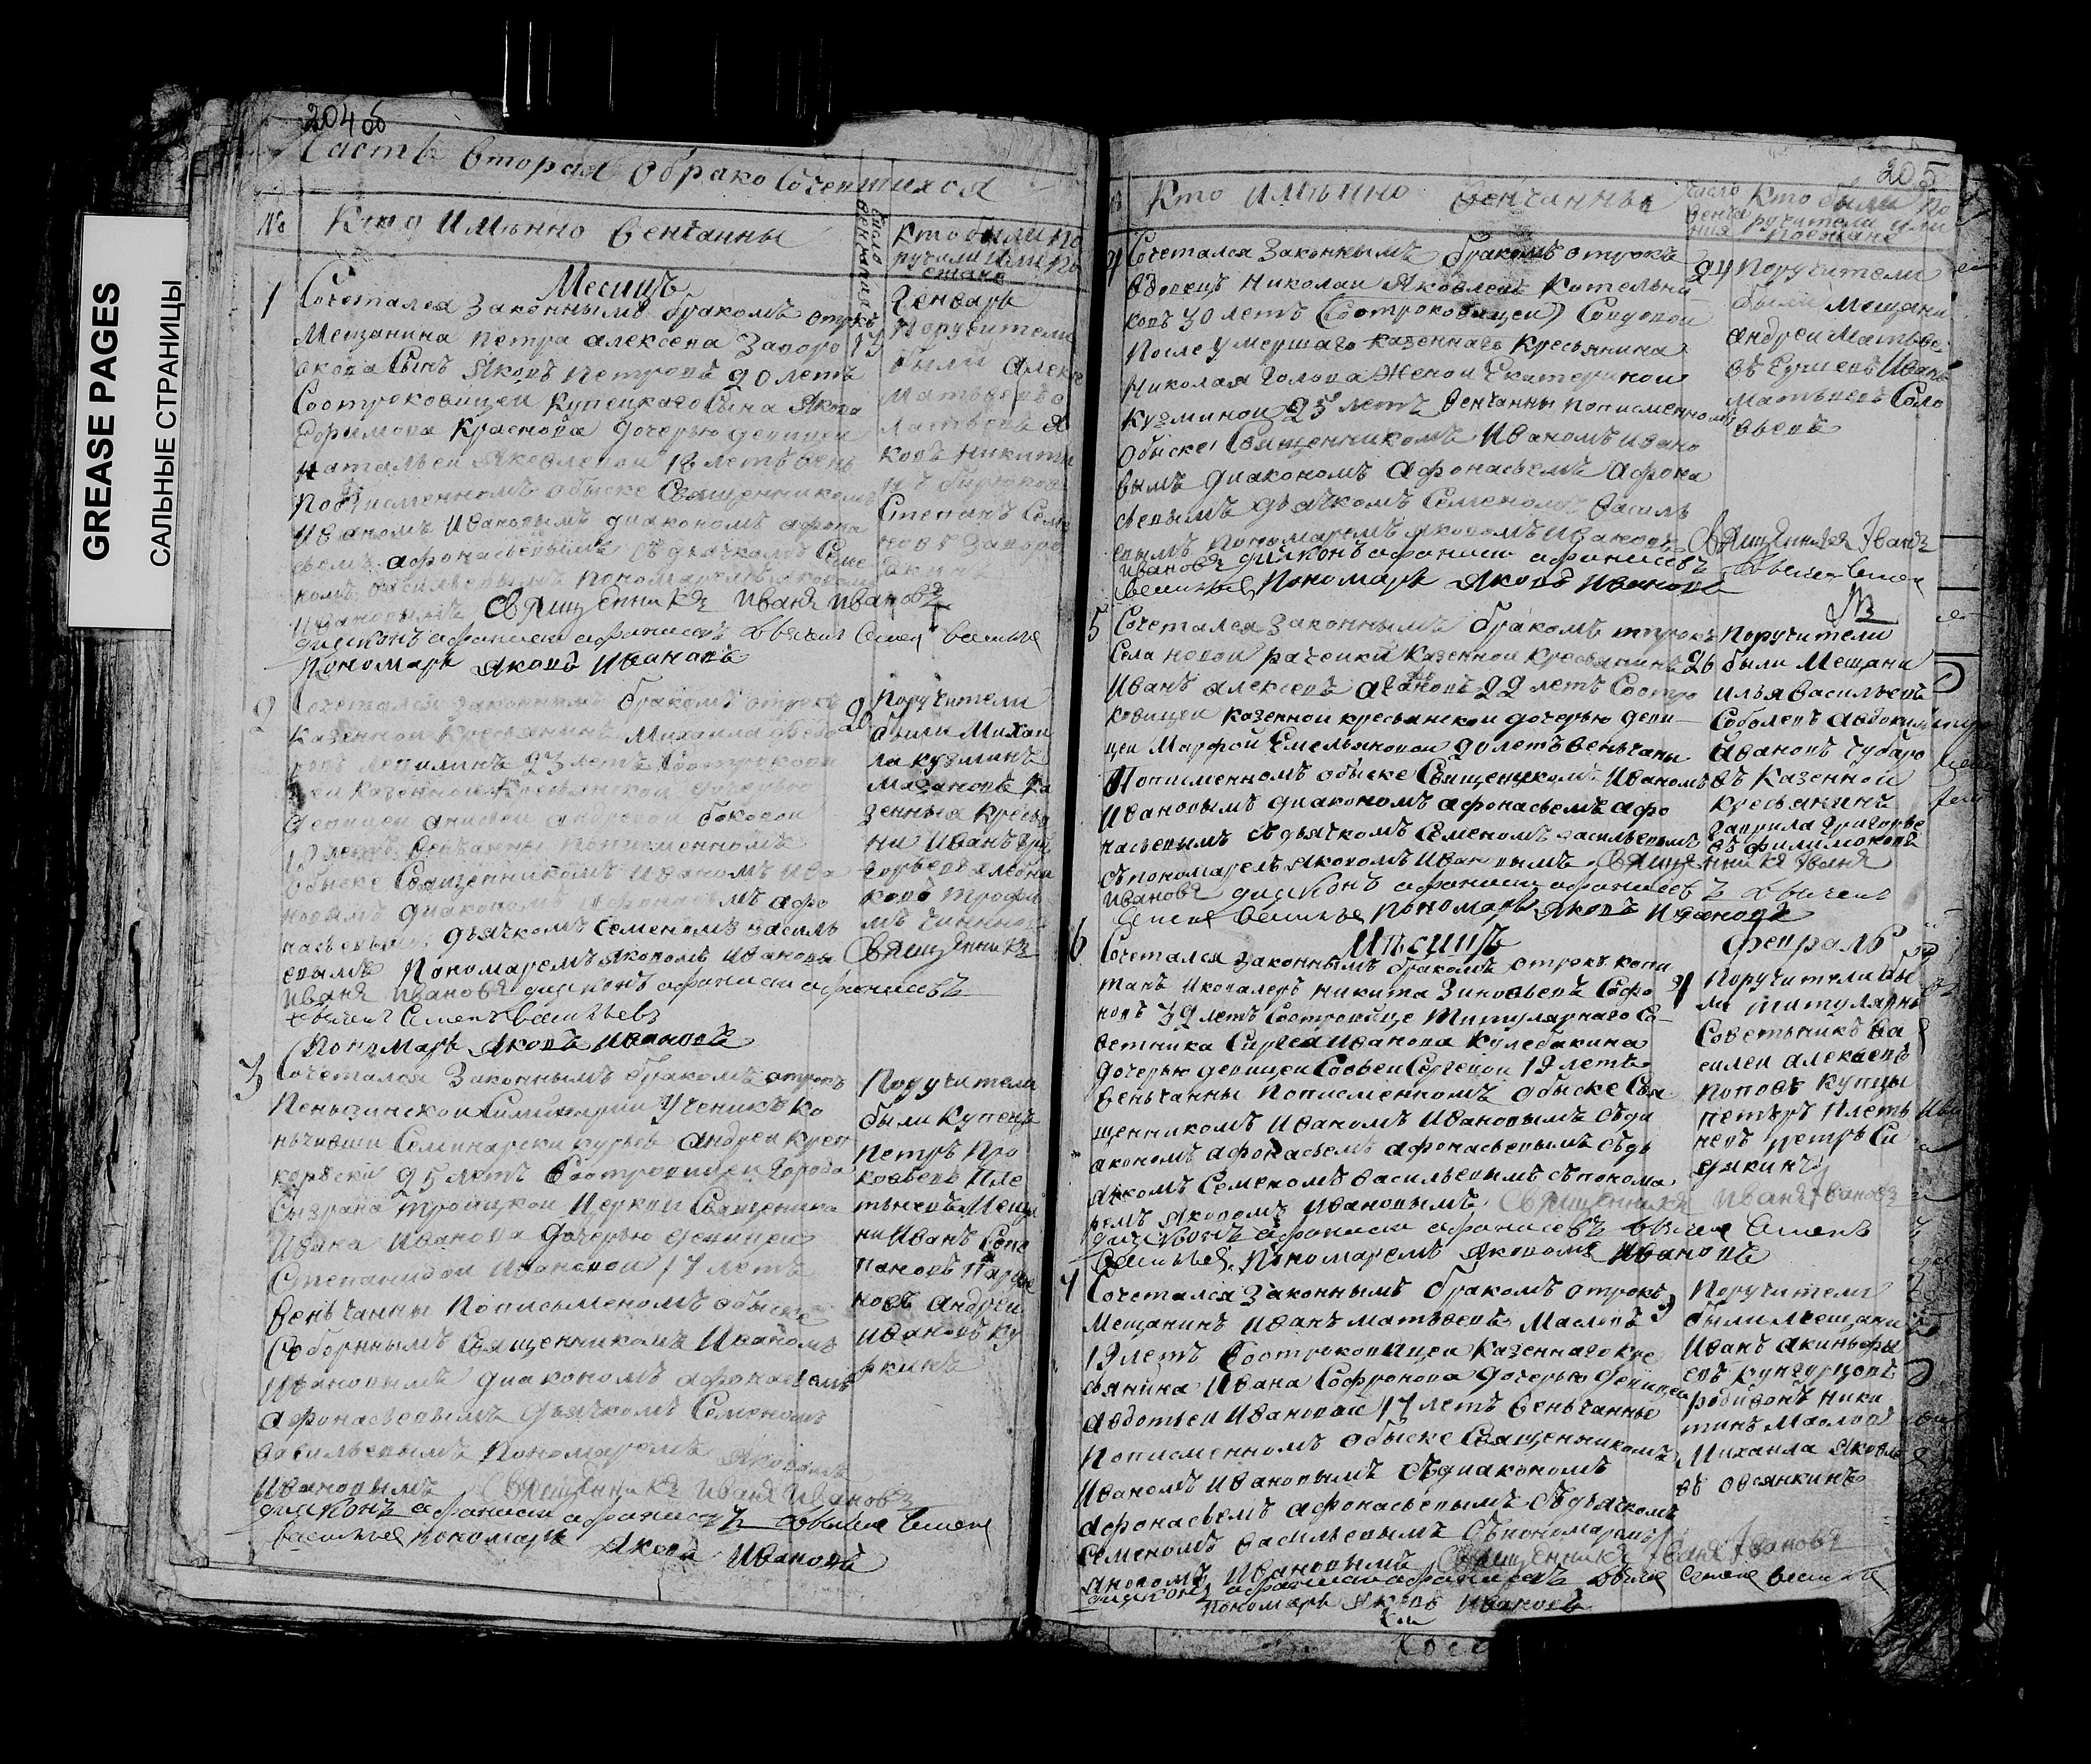 GREASE PAGES
САЛЬНЫЕ СТРАНИЦЫ
204 об
Часть вторая О брако Сочетшихся
№
Кто имянно венчанны
число венчания
Кто были по
ручили или по
езжане
Месяцъ
Генварь
1
Сочетался законнымъ бракомъ отрокъ
Мещанина Петра Алексева Заворо
сынъ Яковъ Петровъ 20 летъ
Соотроковицеи купецкаго сына Якова
Ефимова Краснова дочерью девицеи
Натальеи Яковлевои 18 летъ вень
Пописменномъ обыске Священникомъ
Иваномъ Ивановымъ диакономъ афона
сьемъ афонасьевымъ съ дьячкомъ Семе
номъ Васильевымъ пономаремъ Яковомъ
Ивановымъ Священникъ Иванъ Ивановъ
диаконъ афанасии афанасевъ дьячекъ Семен Василье
Пономарь Яковъ Ивановъ
19
Поручители
были Алексе
Матвеевъ
ковъ Никити
Степанъ Семе
новъ Заворо
2
Сочетался законнымъ бракомъ отрокъ
казеннои кресьянинъ Михаила Федо
ровъ 23 летъ Соотрокови
цеи казеннои кресьянскои дочерью
девицеи анисьеи андревои боковои
19 летъ венчанны Пописменномъ
обыске Священникомъ Иваномъ Ива
новымъ диакономъ афонасьемъ афо
насьевымъ дьячкомъ Семеномъ Василь
евымъ Пономаремъ Яковомъ Ивановы Священникъ
Иванъ Ивановъ диаконъ афанасии афанасевъ
дьячекъ Семенъ Васильевъ
Пономарь Яковъ Ивановъ
20
Поручители
были Михаи
ла Кузминъ
Мазановъ ка
зенныя кресья
ни Иванъ Гри
горьевъ
ковъ Трофи
мъ
3
Сочетался законнымъ бракомъ отрокъ
Пеньзинскои Симинарии Ученикъ ко
ньчивши Семинарски курсъ андреи
25 летъ Соотроковицеи города
Сызрана Троицкои Церкви Священика
Ивана Иванова дочерью девицеи
Степанидои Ивановои 17 летъ
веньчанны Пописьменомъ обыске
Соборнымъ Священникомъ Иваномъ
Ивановымъ диакономъ афонасьемъ
афонасьевымъ дьячкомъ Семеномъ
Васильевымъ Пономаремъ Яковомъ
Ивановымъ Священникъ Иванъ Ивановъ
диаконъ афанасии афанасевъ дьячекъ Семен
Васильев пономарь Яковъ Ивановъ
Поручители
были купецъ
Петръ Про
кофьевъ Пле
тьневъ Меща
ни Иванъ Сте
пановъ
новъ андреи
Ивановъ Ку
ркинъ
205
Кто имянно венчанны
число
венча
ния
Кто были по
ручители или
поезжане
4
Сочетался законнымъ бракомъ отрокъ
вдовецъ Николаи Яковлевъ Котельни
ковъ 30 летъ (Соотроковицеи) Совдовои
После умершаго казеннаго кресьянина
Николая Голова женои Екатеринои
Кузминои 25 летъ венчанны пописменномъ
обыске Священникомъ Иваномъ Ивано
вымъ диакономъ афонасьемъ афона
сьевымъ дьячкомъ Семеномъ Василь
евымъ Пономаремъ Яковомъ Ивановъ Священникъ Иванъ
Ивановъ диаконъ афанасии афанасевъ дьячекъ Семен
Васильев Пономарь Яковъ Ивановъ
24
Поручители
были Мещани
андреи Матвее
въ Иванъ
Матвеевъ Соло
вьевъ
5
Сочетался законнымъ бракомъ отрокъ
Села Новои рачеики казеннои кресьянинъ
Иванъ алексевъ 22 летъ Соотро
ковицеи казеннои кресьянскои дочерью деви
цеи Марфои Емельяновои 20 летъ веньчаны
Пописменномъ обыске Священикомъ Иваномъ
Ивановымъ диакономъ афонасьемъ афо
насьевымъ съ дьячкомъ Семеномъ Васильевымъ
съ пономаремъ Яковомъ Ивановымъ Священникъ Иванъ
Ивановъ диаконъ афанасии афанасевъ дьячекъ
Семен Василье Пономарь Яковъ Ивановъ
26
Поручители
были Мещани
Илья Васильевъ
Соболевъ авдоким
Ивановъ Чубаро
въ казеннои
кресьянинъ
Гаврила Григорье
въ Филимоновъ
Месяцъ
Февраль
6
Сочетался законнымъ бракомъ отрокъ капи
танъ и кавалеръ Никита Зиновьевъ Софо
новъ 32 летъ Соотроковице Титулярнаго Со
ветника Сиргея Иванова Кулебакина
дочерью девицеи Софьеи Сергевои 19 летъ
веньчанны Пописменномъ обыске Свя
щенникомъ Иваномъ Ивановымъ съ ди
акономъ афонасьемъ афонасьевымъ съ дь
ячкомъ Семеномъ Васильевымъ съ понома
ремъ Яковомъ Ивановымъ Священникъ Иванъ Ивановъ
диаконъ афанасии афанасевъ дьячекъ Семенъ
Васильев Пономаремъ Яковомъ Ивановъ
Поручители бы
ли титулярны
Советьникъ Ва
силеи алексевъ
Поповъ купцы
Петъръ Плеть
невъ Петръ Си
дякинъ
7
Сочетался законнымъ бракомъ отрокъ
Мещанинъ Иванъ Матвеевъ Масловъ
19 летъ Соотроковицеи казеннаго кре
сьянина Ивана Софронова дочерью девицеи
авдотьеи Ивановои 17 летъ веньчанны
Пописменномъ обыске Священникомъ
Иваномъ Ивановымъ съ диакономъ
афонасьемъ афонасьевымъ съ дьячкомъ
Семеномъ Васильевымъ съ пономаремъ
Яковомъ Ивановымъ Священникъ Иванъ Ивановъ
диаконъ афанасии афанасевъ дьячекъ Семен Василье
Пономарь Яковъ Ивановъ
Поручители
были Мещани
Иванъ акиньфи
евъ Кунгурцовъ
родивонъ Ники
тинъ Масловъ
Михаила Яковле
въ Овсянкинъ